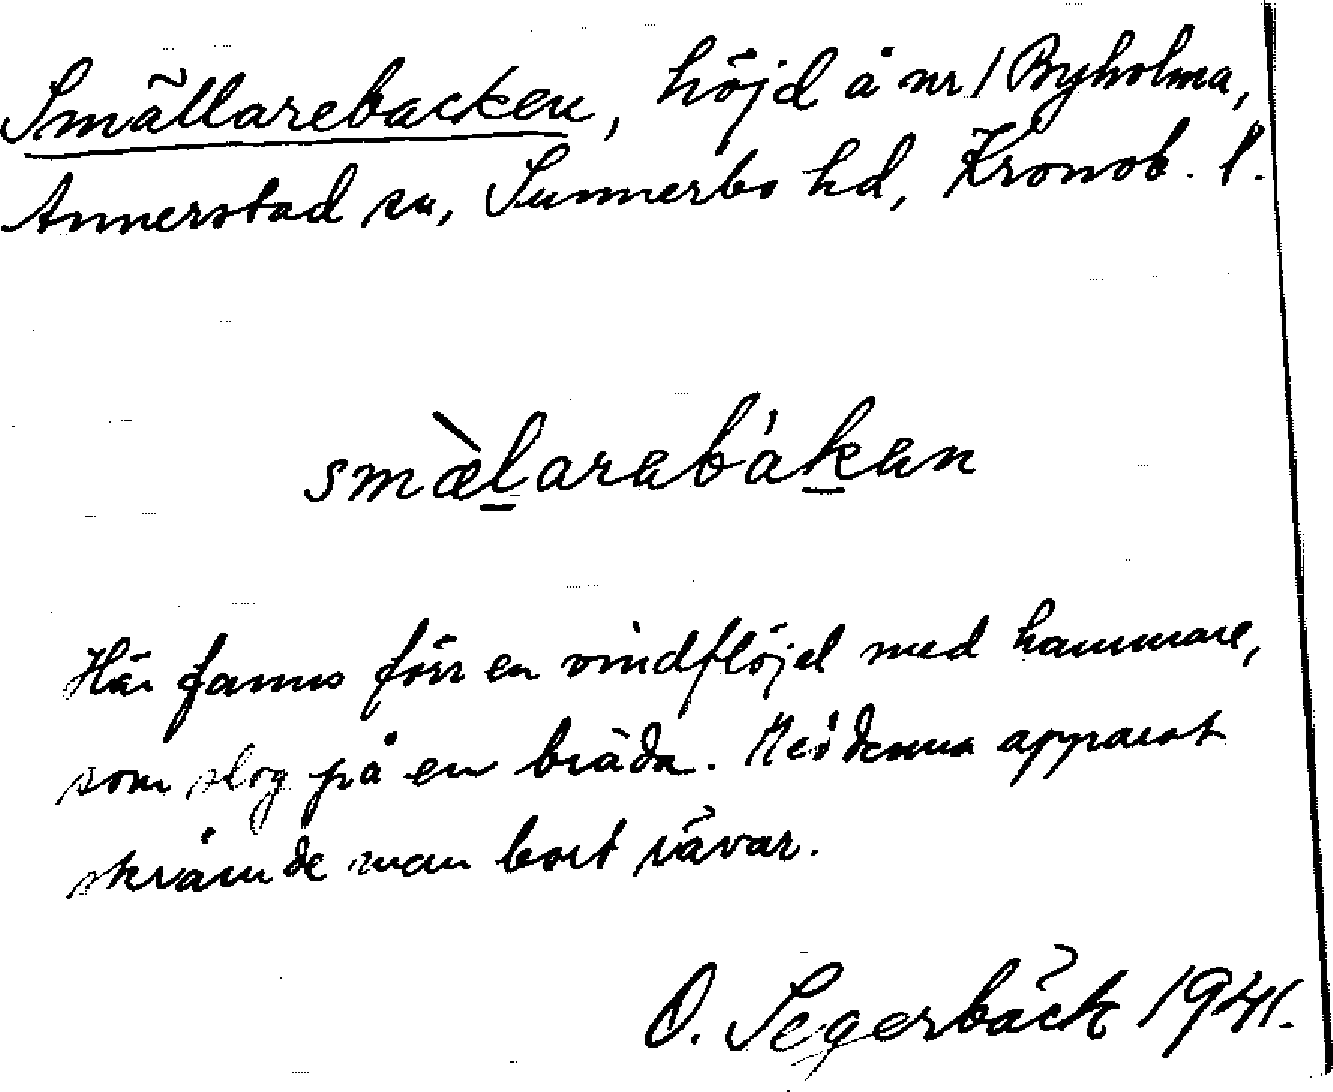 Smällarebacken, höjd å nr 1 Byholma,
Annerstad sn, Sunnerbo hd, Kronob. l.
smæ̀l̲arabák̲an
Här fanns förr en vindflöjel med hammare,
som slog på en bräda. Med denna apparat
skrämde man bort rävar.
O. Segerbäck 1941.